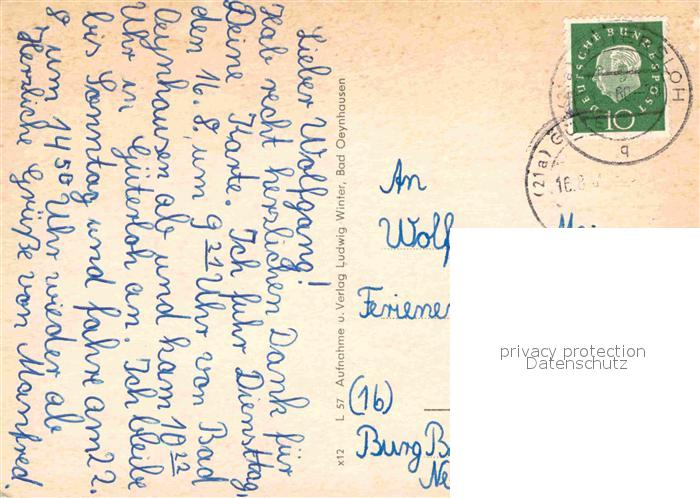 Lieber Wolfgang!
Hab recht herzlichen Dank für
Deine Karte. Ich fuhr Dienstag,
den 16.8, um 9 21 Uhr von Bad
Oeynhausen ab und kam 10 22
Uhr in Gütersloh an. Ich bleibe
bis Sonntag und fahre am 22.
8 um 14 50 Uhr wieder ab
Herzliche Grüße von Manfred.
x12 L 57 Aufnahme u. Verlag Ludwig Winter, Bad Oeynhausen
DEUTSCHE BUNDESPOST
10
(21a) GÜ
LOH
q
16.8
An
Wolf
Feriener
(16)
Burg B
Ne
privacy protection
Datenschutz